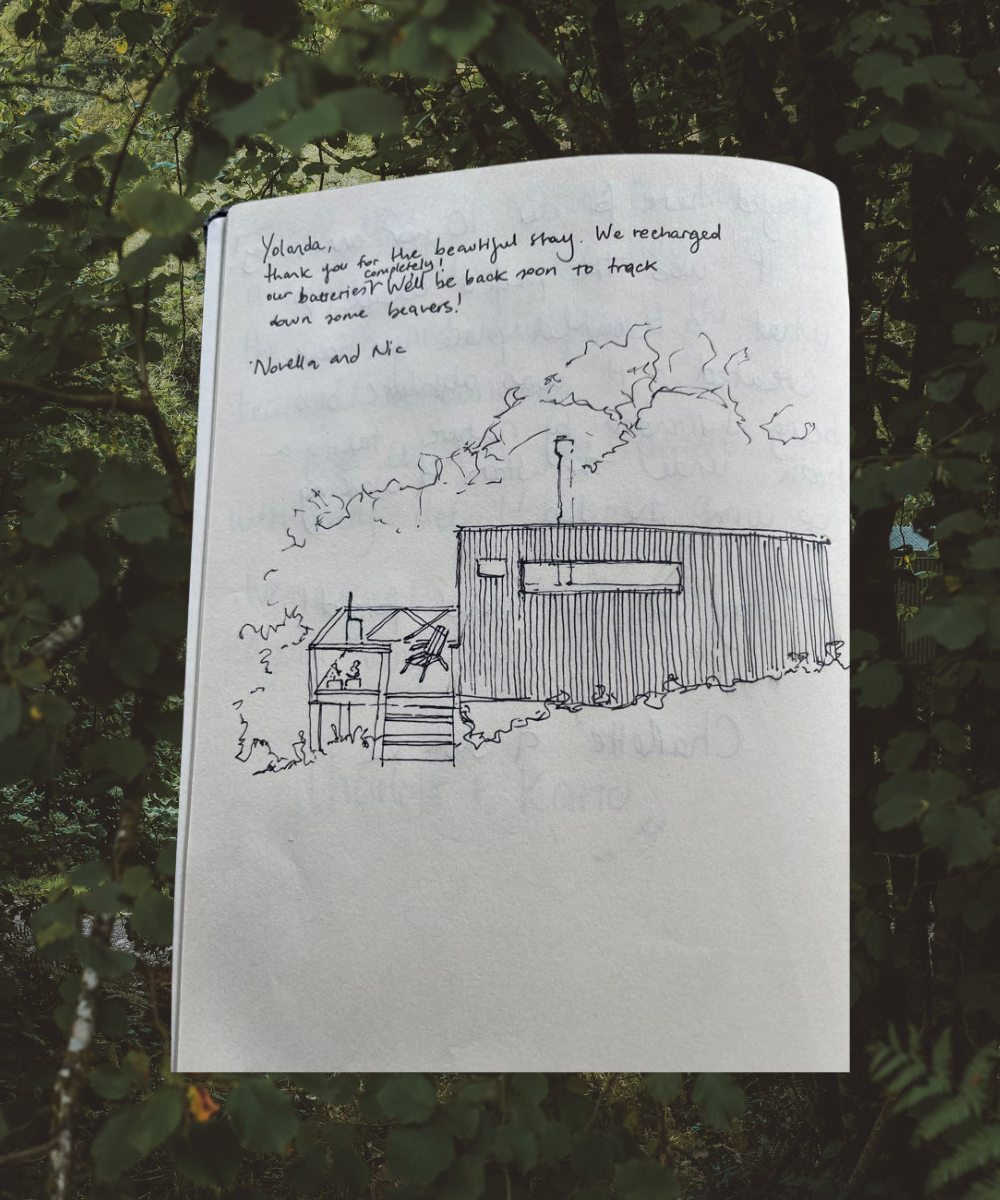 Yolanda,
thank you for the beautiful stay. We recharged
completely!
our batteries. We'll be back soon to track
down some beavers!
Novella and Nic